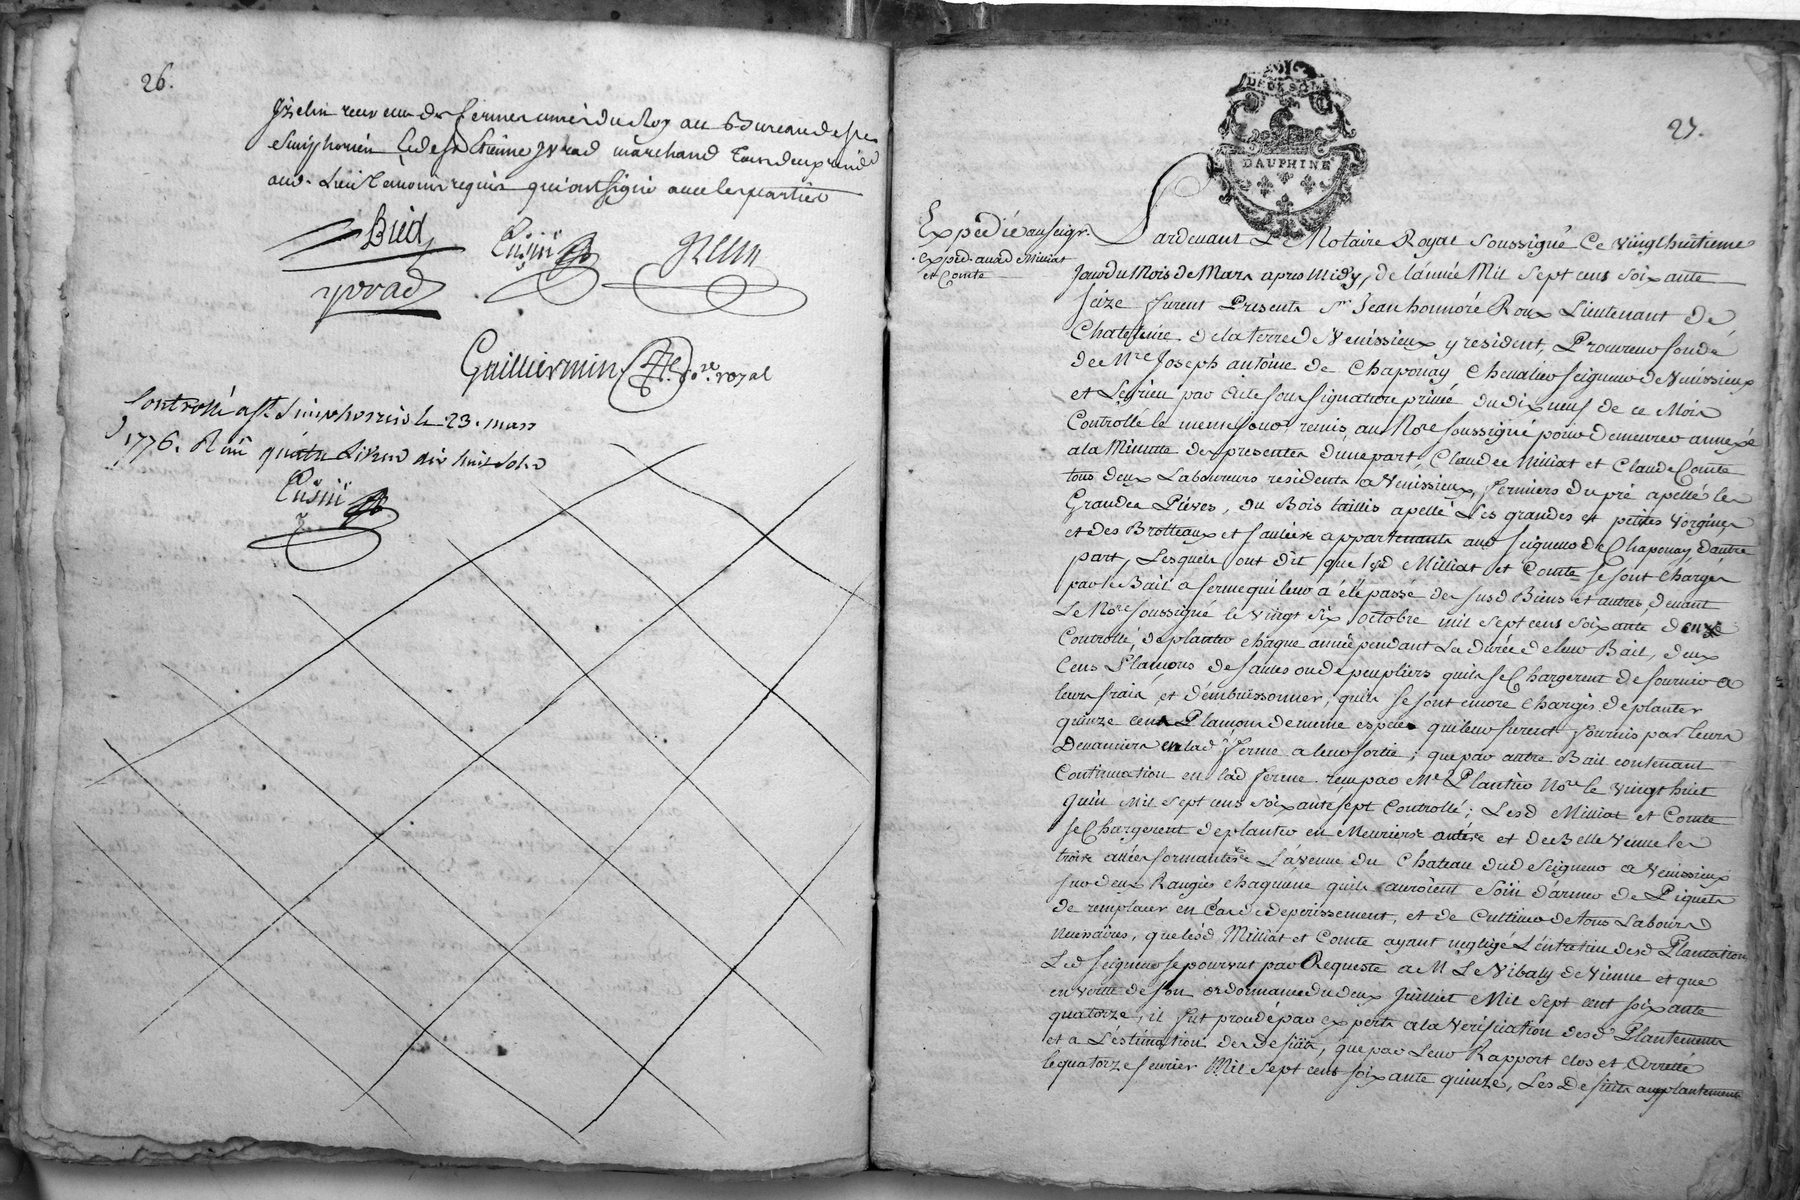 26.
receveur des fermes unies du Roy au Bureau de St
Simphorien et de Sr Etienne Yvrad marchand tous deux résidt
aud. Lieu temoins requis qui ont signé avec les parties
Bied
Cusin
yvrad
Guilliermin
No.re royal
Controllé a St. Simphorien le 23. mars
1776. Reçu quatre Livres dix huit sols
Cusin
27.
DEUX SOLS
DAUPHINE
Expedié au seigr.
exped. auxd Milliat
et Comte
Pardevant Le Notaire Royal soussigné Ce vingthuitieme
Jour du Mois de Mars apres midy, de l'année Mil sept cens soixante
seize furent Presents Sr Jean honnoré Roux Lieutenant de
Chatelenie de la terre de Venissieux y resident, Procureur fondé
de Mre Joseph antoine de Chaponay Chevalier seigneur de Venissieux
et par acte sous signature privée du dix neuf de ce Mois
Controllé le meme jour, remis au Nore soussigné pour demeurer annexé
a la Minute des presentes d'une part, Claude Milliat et Claude Comte
tous deux Laboureurs residents a Venissieux, fermiers du pré apellé les
Grandes Pièves, du Bois taillis apellé Les grandes et petites Vorgines
et des Brotteaux et saulées appartenants aud seigneur de Chaponay d'autre
part, Lesquels ont dit que lesd Milliat et Comte se sont Chargés
par le Bail a ferme qui leur a été passé des susd Biens et autres, devant
Le Nore soussigné le vingt six octobre mil sept cens soixante
Controllé, de planter chaque année pendant La durée de leur Bail, deux
Cens Plamons de saules ou de peupliers quils se Chargerent de fournir a
leurs frais, et d'embuissonner, quils se sont encore Chargés de planter
quinze cens Plamons de meme espece qui leur furent fournis par leurs
Devanciers en lad ferme a leur sortie; que par autre Bail contenant
Continuation en lad ferme reçu par Me Plantier Nore le vingt huit
Juin Mil sept cens soixante sept Controllé; Lesd Milliat et Comte
se Chargerent de planter en Meuriers antés et de Belle venue les
trois allées formants L'avenue du Chateau dud Seigneur a Venissieux
sur deux Rangées chaqune quils auroient soin d'armer de Piquets
de remplacer en Cas de deperissement, et de Cultiver de tous Labours
necessaires, que lesd Milliat et Comte ayant negligé L'entretien desd Plantations
Led seigneur se pourvut par Requeste a M Le Vibaly de Vienne et que
en vertu de son ordonnance du deux Juillet Mil sept cent soixante
quatorze, il fut procedé par experts a la verification desd Plantements
et a L'estimation des deficits, que par Leur Rapport clos et Arretté
le quatorze fevrier Mil sept cent soixante quinze, Les Deficits auxd plantements